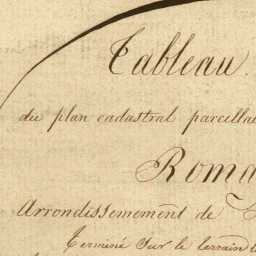 Tableau
du plan cadastral parcellai
Roma
Arrondissemement de
Terminé sur le terrain l